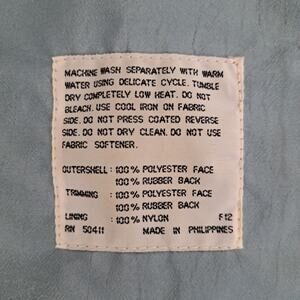 MACHINE WASH SEPARATELY WITH WARM
WATER USING DELICATE CYCLE. TUMBLE
DRY COMPLETELY LOW HEAT. DO NOT
BLEACH. USE COOL IRON ON FABRIC
SIDE. DO NOT PRESS COATED REVERSE
SIDE. DO NOT DRY CLEAN. DO NOT USE
FABRIC SOFTENER.
OUTERSHELL : 100% POLYESTER FACE
100% RUBBER BACK
TRIMMING : 100% POLYESTER FACE
100% RUBBER BACK
LINING : 100% NYLON F12
RN 50411 MADE IN PHILIPPINES